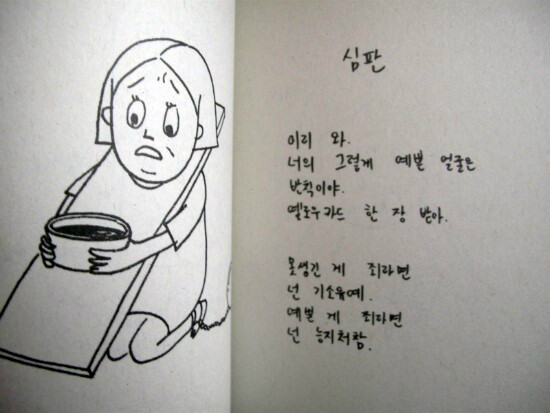 심판
이리 와.
너의 그렇게 예쁜 얼굴은
반칙이야.
옐로우카드 한 장 받아.
못생긴 게 죄라면
넌 기소유예.
예쁜 게 죄라면
넌 능지처참.